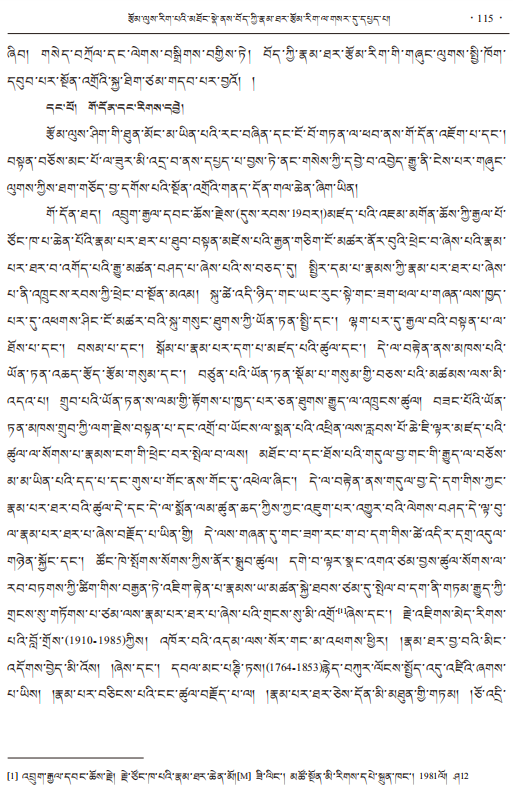 རྩོམ་ལུས་རིག་པའི་མཐོང་སྣེ་ནས་བོད་ཀྱི་རྣམ་ཐར་རྩོམ་རིག་ལ་གསར་དུ་དཔྱད་པ། · 115 ·
ཞིབ། གསེད་བཀྲོལ་དང་ལེགས་བསྒྲིགས་བགྱིས་ཏེ། བོད་ཀྱི་རྣམ་ཐར་རྩོམ་རིག་གི་གཞུང་ལུགས་སྤྱི་ཁོག་
དབུབ་པར་སྔོན་འགྲོའི་སྐྱ་ཐིག་ཙམ་གདབ་པར་བྱའོ། །
དང་པོ། གོ་དོན་དང་རིགས་དབྱེ།
རྩོམ་ལུས་ཤིག་གི་ཐུན་མོང་མ་ཡིན་པའི་རང་བཞིན་དང་ངོ་བོ་གཏན་ལ་ཕབ་ནས་གོ་དོན་འཇོག་པ་དང་།
བསྟན་བཅོས་མང་པོ་ལ་ཟུར་མི་འདྲ་བ་ནས་དཔྱད་པ་བྱས་ཏེ་ནང་གསེས་ཀྱི་དབྱེ་བ་འབྱེད་རྒྱུ་ནི་ངེས་པར་གཞུང་
ལུགས་ཀྱིས་ཐག་གཅོད་བྱ་དགོས་པའི་སྔོན་འགྲོའི་གནད་དོན་གལ་ཆེན་ཞིག་ཡིན།
གོ་དོན་ཐད། འབྲུག་རྒྱལ་དབང་ཆོས་རྗེས་(དུས་རབས་19བར།)མཛད་པའི་འཇམ་མགོན་ཆོས་ཀྱི་རྒྱལ་པོ་
ཙོང་ཁ་པ་ཆེན་པོའི་རྣམ་པར་ཐར་པ་ཐུབ་བསྟན་མཛེས་པའི་རྒྱན་གཅིག་ངོ་མཚར་ནོར་བུའི་ཕྲེང་བ་ཞེས་པའི་རྣམ་
པར་ཐར་བ་འགོད་པའི་རྒྱུ་མཚན་བཤད་པ་ཞེས་པའི་ས་བཅད་དུ། སྤྱིར་དམ་པ་རྣམས་ཀྱི་རྣམ་པར་ཐར་པ་ཞེས་
པ་ནི་འཁྲུངས་རབས་ཀྱི་ཕྲེང་བ་སྔོན་མའམ། སྐུ་ཚེ་འདི་ཉིད་གང་ཡང་རུང་སྟེ་གང་ཟག་ཕལ་པ་གཞན་ལས་ཁྱད་
པར་དུ་འཕགས་ཤིང་ངོ་མཚར་བའི་སྐུ་གསུང་ཐུགས་ཀྱི་ཡོན་ཏན་སྤྱི་དང་། ལྷག་པར་དུ་རྒྱལ་བའི་བསྟན་པ་ལ་
ཐོས་པ་དང་། བསམ་པ་དང་། སྒོམ་པ་རྣམ་པར་དག་པ་མཛད་པའི་ཚུལ་དང་། དེ་ལ་བརྟེན་ནས་མཁས་པའི་
ཡོན་ཏན་འཆད་རྩོད་རྩོམ་གསུམ་དང་། བཙུན་པའི་ཡོན་ཏན་སྡོམ་པ་གསུམ་གྱི་བཅས་པའི་མཚམས་ལས་མི་
འདའ་པ། གྲུབ་པའི་ཡོན་ཏན་ས་ལམ་གྱི་རྟོགས་པ་ཁྱད་པར་ཅན་ཐུགས་རྒྱུད་ལ་འཁྲུངས་ཚུལ། བཟང་པོའི་ཡོན་
ཏན་མཁས་གྲུབ་ཀྱི་ལག་རྗེས་བསྟན་པ་དང་འགྲོ་བ་ཡོངས་ལ་སྨན་པའི་འཕྲིན་ལས་རླབས་པོ་ཆེ་ཇི་ལྟར་མཛད་པའི་
ཚུལ་ལ་སོགས་པ་རྣམས་ངག་གི་ཕྲེང་བར་སྤེལ་བ་ལས། མཐོང་བ་དང་ཐོས་པའི་གདུལ་བྱ་གང་གི་རྒྱུད་ལ་བཅོས་
མ་མ་ཡིན་པའི་དད་པ་དང་གུས་པ་གོང་ནས་གོང་དུ་འཕེལ་ཞིང་། དེ་ལ་བརྟེན་ནས་གདུལ་བྱ་དེ་དག་གིས་ཀྱང་
རྣམ་པར་ཐར་བའི་ཚུལ་དེ་དང་དེ་ལ་སློན་ལམ་ཚུན་ཆད་ཀྱིས་ཀྱང་འཇུག་པར་འགྱུར་བའི་ལེགས་བཤད་དེ་ལྟ་བུ་
ལ་རྣམ་པར་ཐར་པ་ཞེས་བརྗོད་པ་ཡིན་གྱི། དེ་ལས་གཞན་དུ་གང་ཟག་རང་ག་བ་དག་གིས་ཚེ་འདིར་དགྲ་འདུལ་
གཉེན་སྐྱོང་དང་། ཚོང་ཁེ་སྤོགས་སོགས་ཀྱིས་ནོར་སྒྲུབ་ཚུལ། དགེ་བ་ལྟར་སྣང་འགའ་ཙམ་བྱས་ཚུལ་སོགས་ལ་
རབ་བཏགས་ཀྱི་ཚིག་གིས་བརྒྱན་ཏེ་འཇིག་རྟེན་པ་རྣམས་ཡ་མཚན་སྐྱེ་ཐབས་ཙམ་དུ་སྤེལ་བ་དག་ནི་གཏམ་རྒྱུད་ཀྱི་
གྲངས་སུ་གཏོགས་པ་ཙམ་ལས་རྣམ་པར་ཐར་པ་ཞེས་པའི་གྲངས་སུ་མི་འགྲོ་[1]ཞེས་དང་། རྗེ་འཇིགས་མེད་རིགས་
པའི་བློ་གྲོས་(1910-1985)ཀྱིས། འཁོར་བའི་འདམ་ལས་སོར་གང་མ་འཕགས་ཕྱིར། །རྣམ་ཐར་བྱ་བའི་མིང་
འདོགས་བྱེད་མི་འོས། །ཞེས་དང་། དབལ་མང་པཎྜི་ཏས།(1764-1853)རྙེད་བཀུར་ལོངས་སྤྱོད་འདུ་འཛིའི་ཞགས་
པ་ཡིས། །རྣམ་པར་བཅིངས་པའི་ངང་ཚུལ་བརྗོད་པ་ལ། །རྣམ་པར་ཐར་ཅེས་དོན་མི་མཐུན་གྱི་གཏམ། །ཅོ་འདྲི་
[1] འབྲུག་རྒྱལ་དབང་ཆོས་རྗེ། རྗེ་ཙོང་ཁ་པའི་རྣམ་ཐར་ཆེན་མོ།[M] ཟི་ལིང་། མཚོ་སྔོན་མི་རིགས་དཔེ་སྐྲུན་ཁང་། 1981ལོ། ཤ12